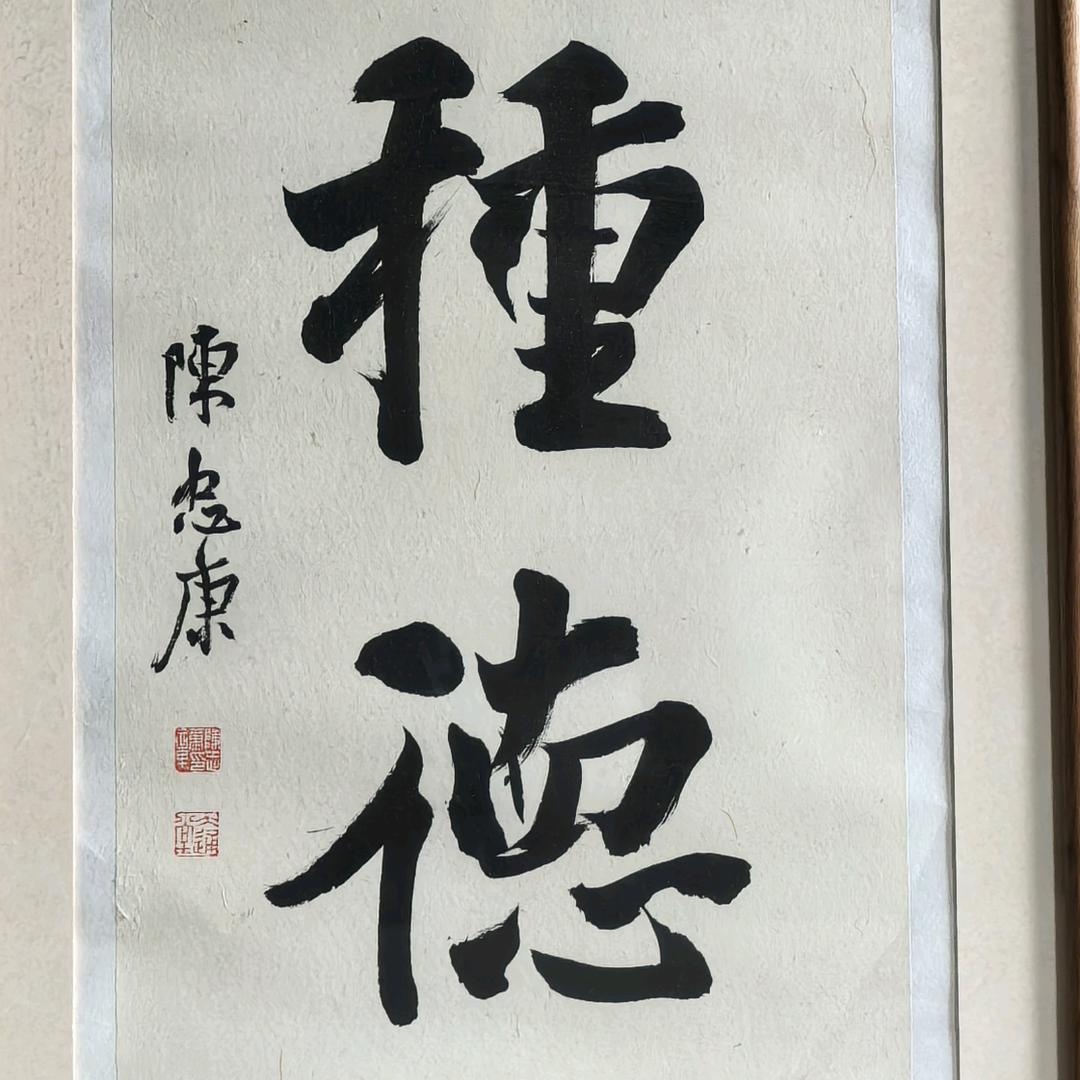 種德
陳忠康